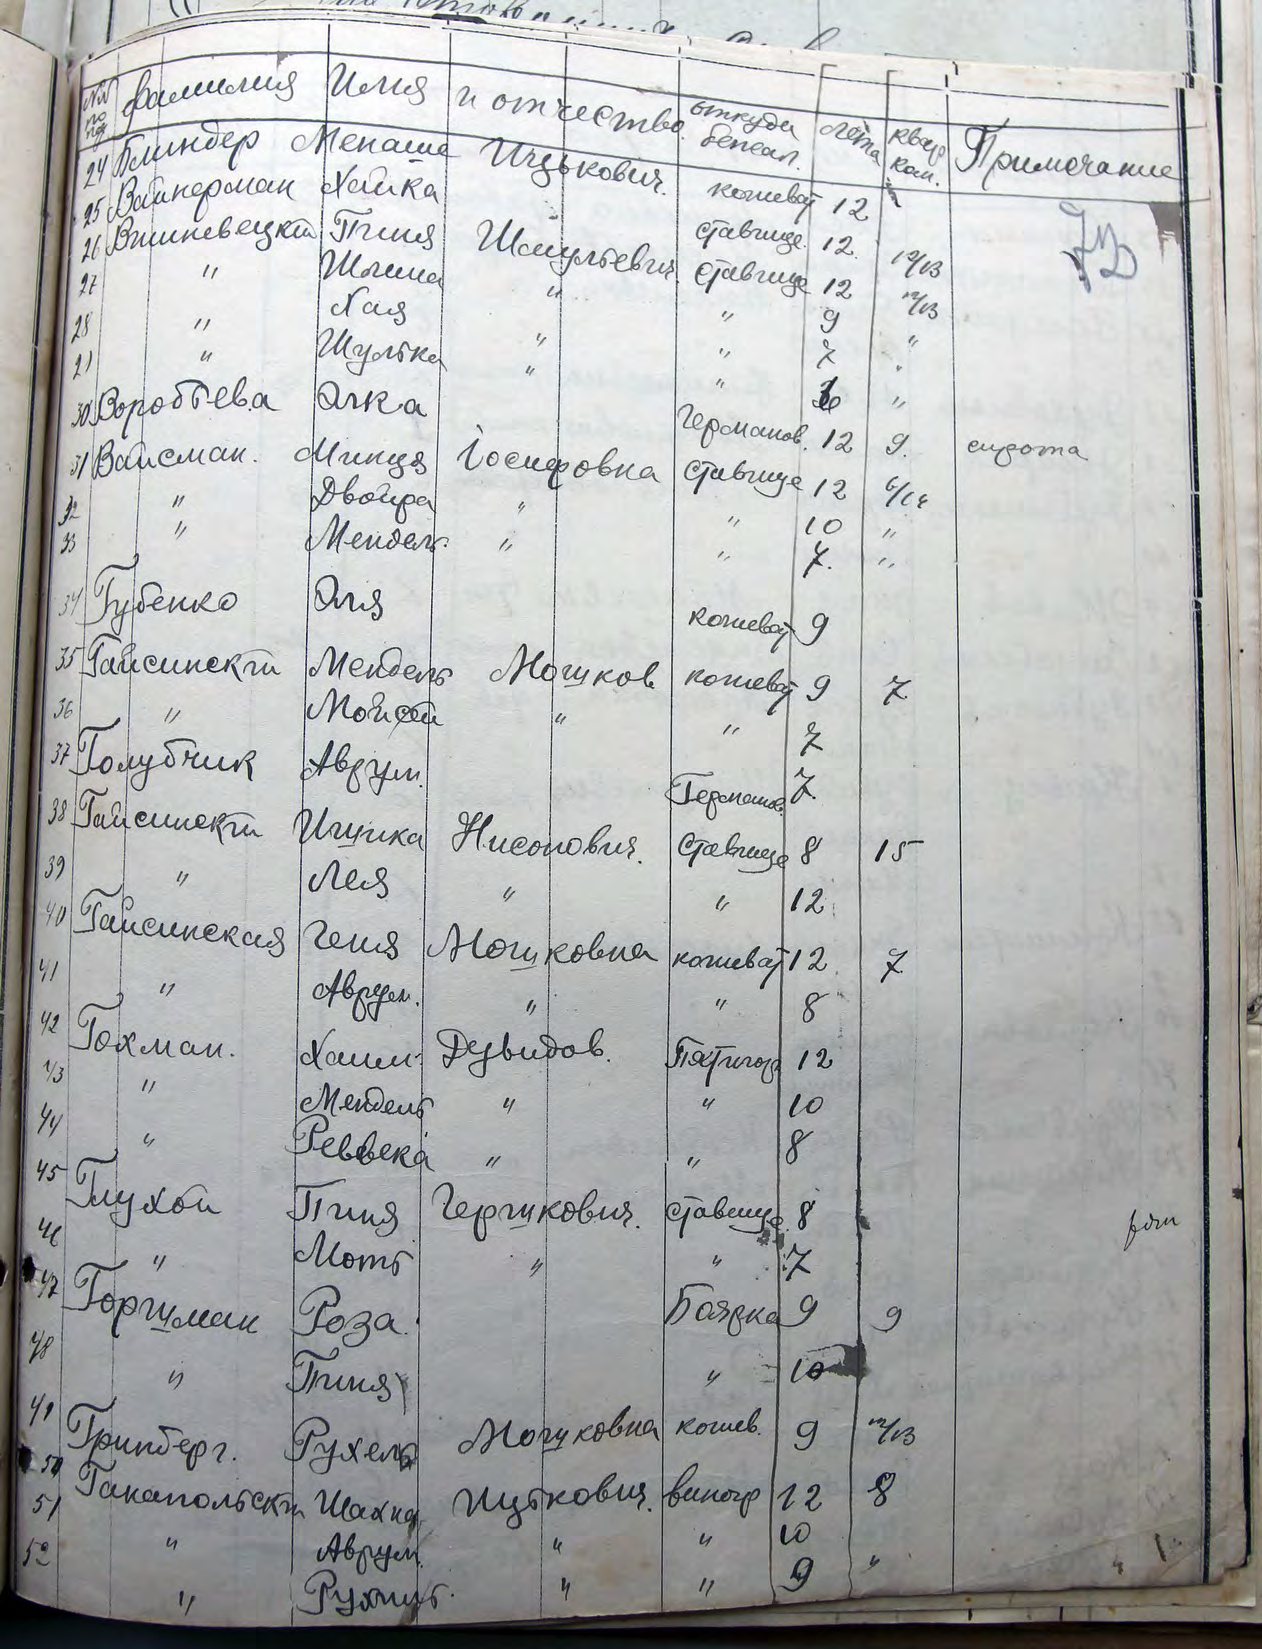 №№ по пор Фамилия Имя и отчество откуда бежал. Лета кварт ком. Примечание
24 Блиндер Менаше Ицькович. кошеват 12
25 Вайнерман Хайка ставище. 12. 12/13
26 Вишневецкий Пиня Шмульевич. ставище 12 12/13
27 " Шеина " " 9 "
28 " Хая " " 7 "
29 " Шулька " " 6 "
30 Воробьева Элка Германов. 12 9. сирота
31 Вайсман. Минця Іосифовна ставище 12 6/14
32 " Двойра " " 10 "
33 " Мендель. " " 7. "
34 Губенко Эля кошеват 9
35 Гайсинский Мендель Мошков. кошеват 9 7
36 " Мойсей " " 7
37 Голубчик Аврум. Германов. 7.
38 Гайсинский Ицика Нисонович. ставище 8 15
39 " Лея " " 12
40 Гайсинская Геня Мошковна кошеват 12 7
41 " Аврум. " " 8
42 Гохман. Хаим. Дувидов. Пятигор 12
43 " Мендель " " 10
44 " Реввека " " 8
45 Глухой Пиня Гершкович. ставище. 8
46 " Моть " " 7
47 Горшман Роза. Боярка 9 9
48 " Пиня " 10
49 Гринберг. Рухель Мошковна кошев. 9 12/13
50 Ганапольский Шахна Ицькович. виногр 12 8
51 " Аврум. " " 10
52 " Рухчит. " " 9 "